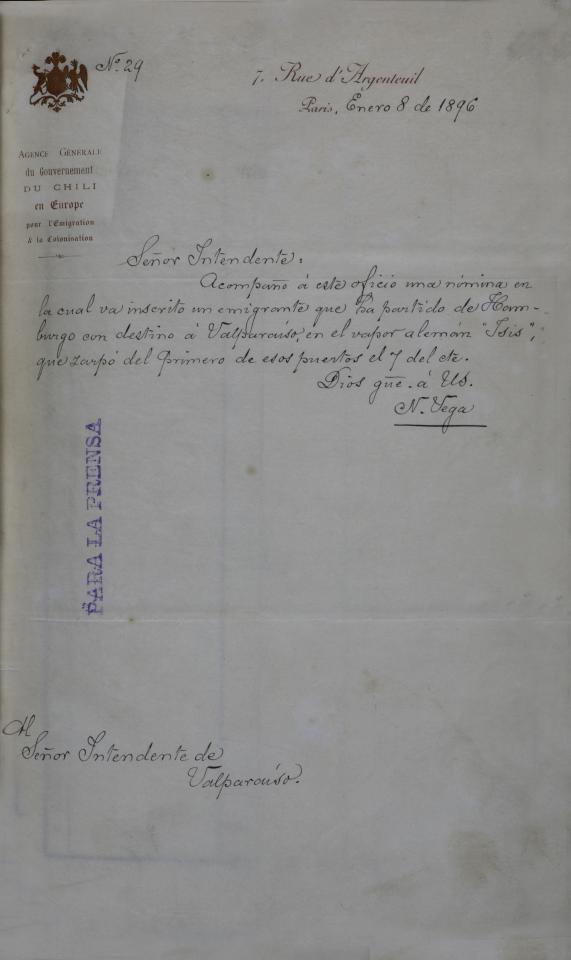 Nº 29
7. Rue d'Argenteuil
Paris, Enero 8 de 1896
AGENCE GÉNÉRALE
du Gouvernement
DU CHILI
en Europe
pour l'Emigration
& la Colonisation
Señor Intendente:
Acompaño á este oficio una nómina en
la cual va inscrito un emigrante que ha partido de Ham-
burgo con destino á Valparaíso, en el vapor alemán "Isis",
que zarpó del primero de esos puertos el 7 del cte.
Dios gũe. á US.
N. Vega
PARA LA PRENSA
Al
Señor Intendente de
Valparaíso.